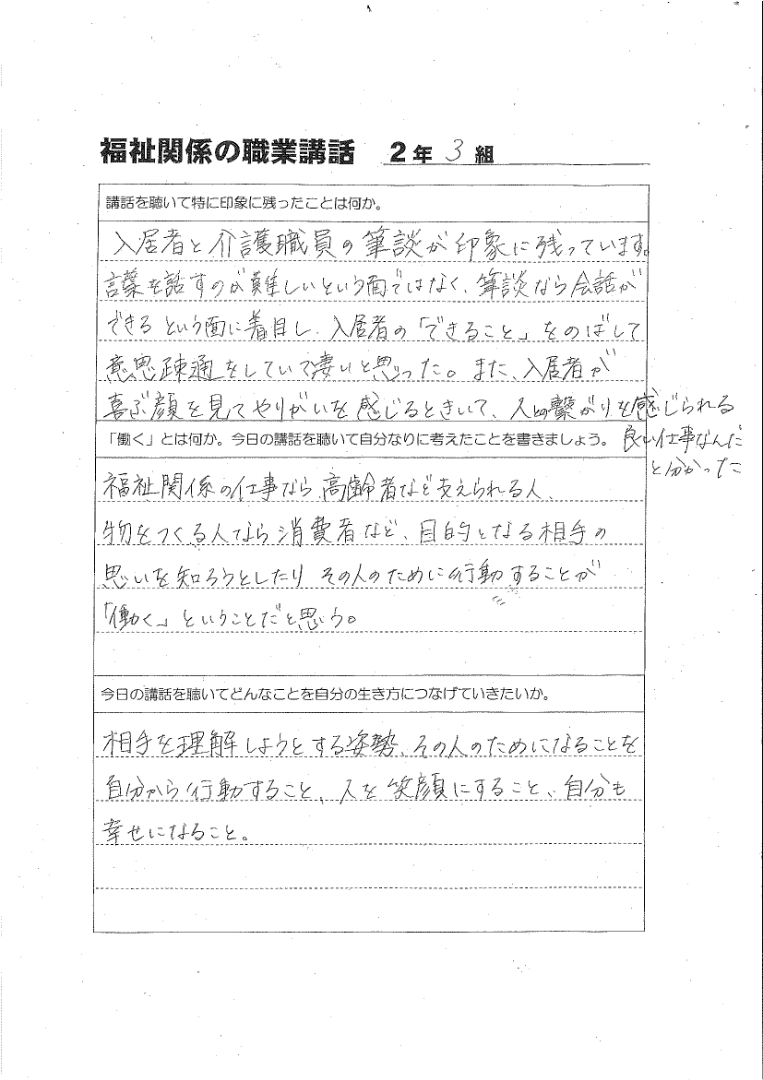 福祉関係の職業講話 2年 3組
講話を聴いて特に印象に残ったことは何か。
入居者と介護職員の筆談が印象に残っています。
言葉を話すのが難しいという面ではなく、筆談なら会話が
できるという面に着目し、入居者の「できること」をのばして
意思疎通をしていて凄いと思った。また、入居者が
喜ぶ顔を見てやりがいを感じるときいて、人との繋がりを感じられる
良い仕事なんだ
と分かった
「働く」とは何か。今日の講話を聴いて自分なりに考えたことを書きましょう。
福祉関係の仕事なら、高齢者など支えられる人、
物をつくる人なら消費者など、目的となる相手の
思いを知ろうとしたり その人のために行動することが
「働く」ということだと思う。
今日の講話を聴いてどんなことを自分の生き方につなげていきたいか。
相手を理解しようとする姿勢、その人のためになることを
自分から行動すること、人を笑顔にすること、自分も
幸せになること。